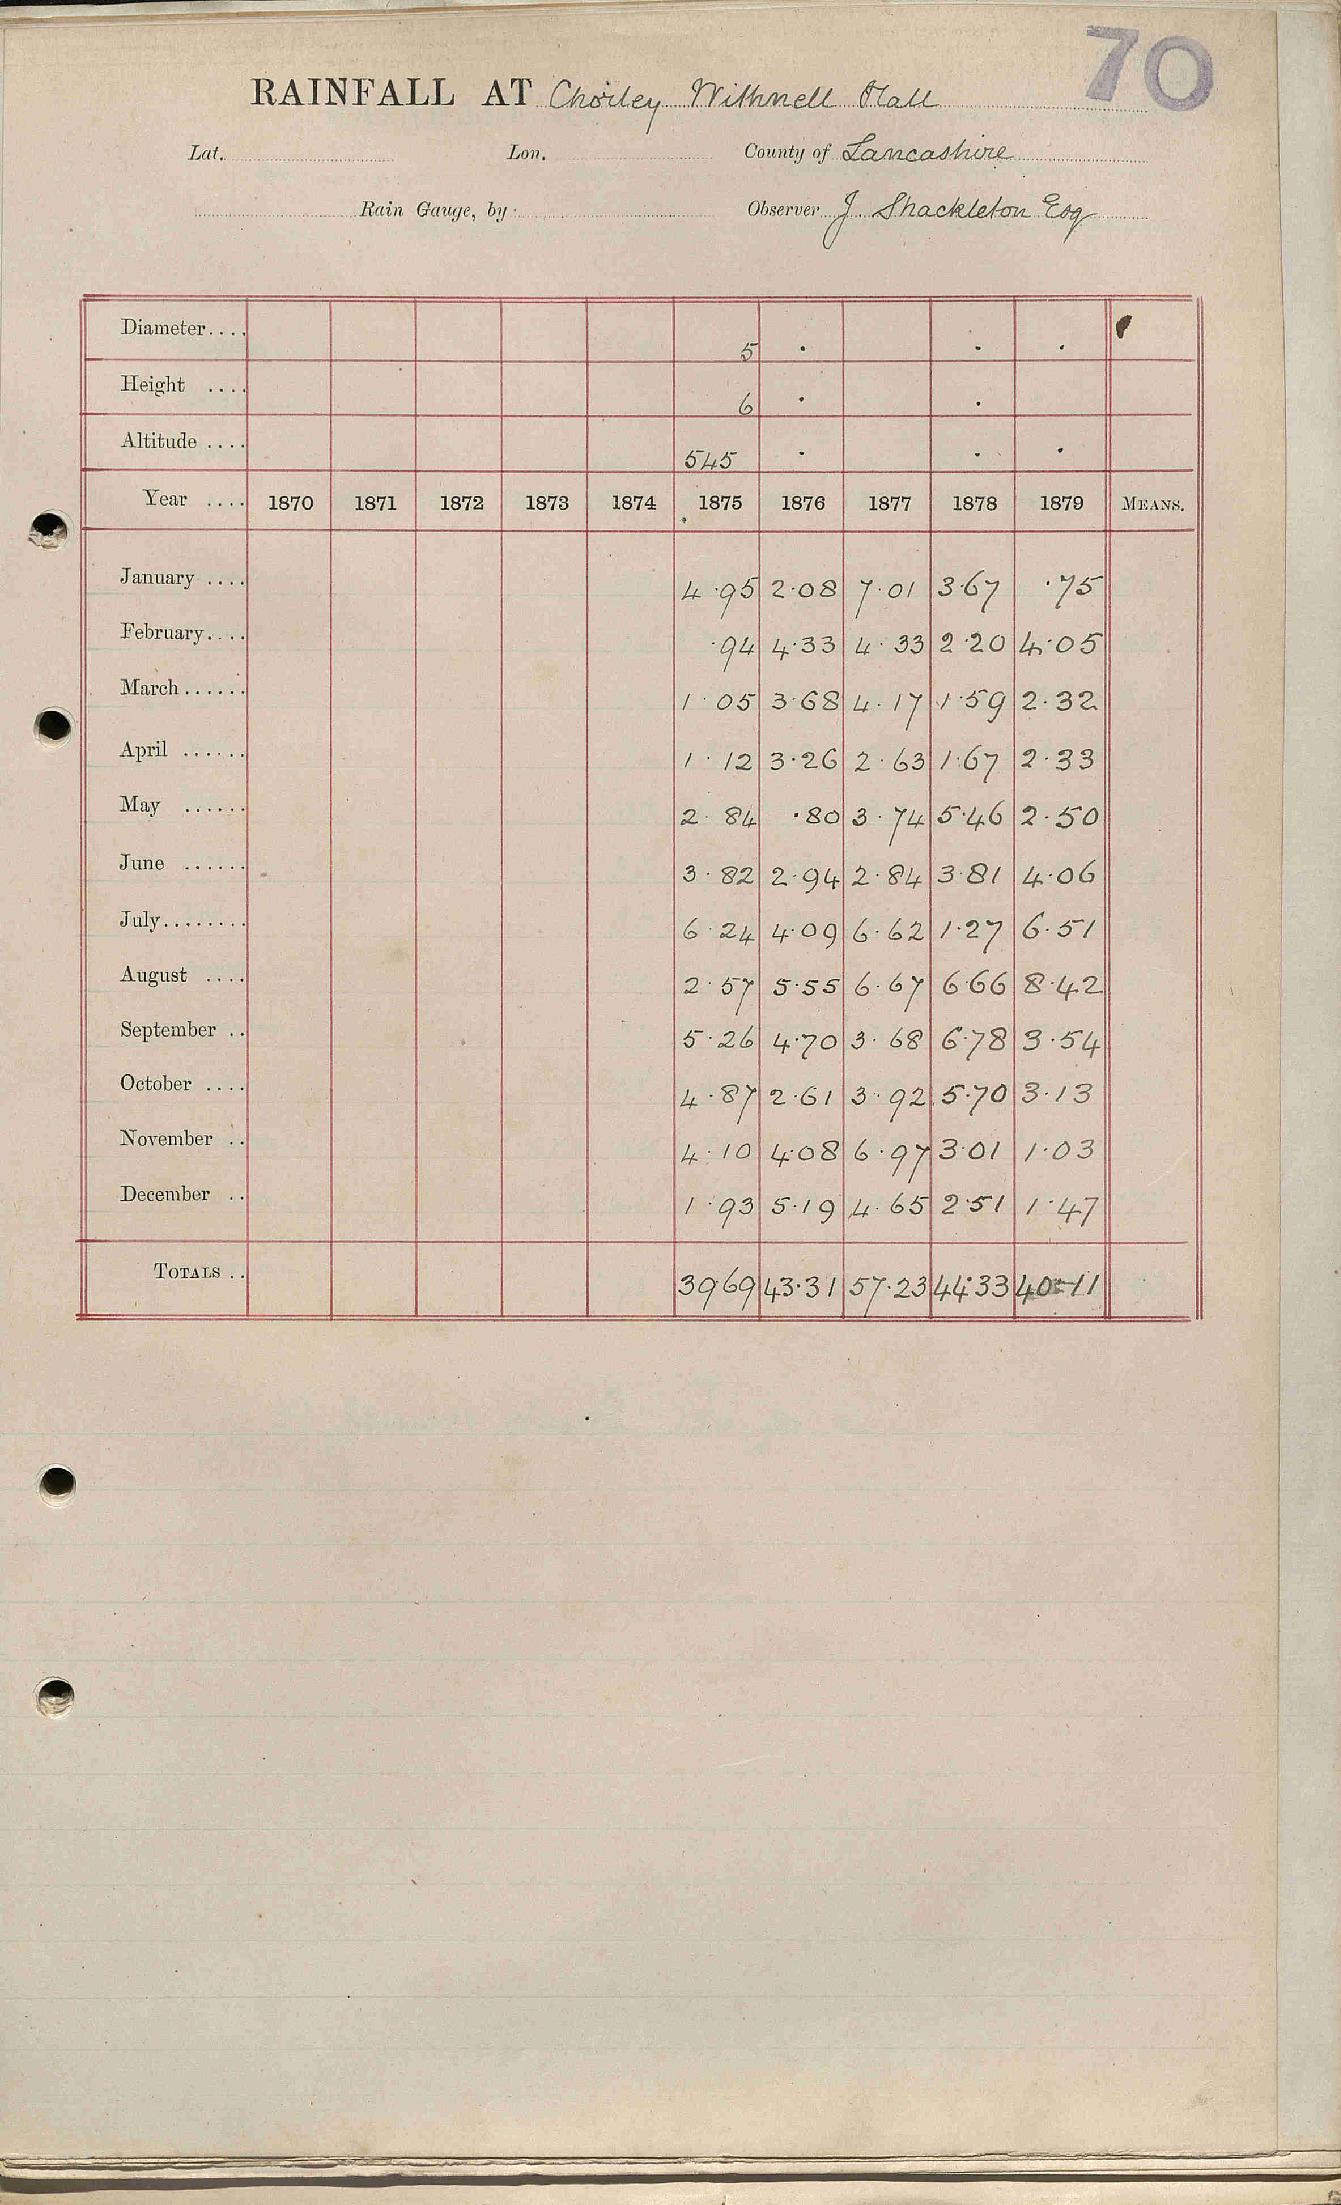 70
RAINFALL AT Chorley Withnell Hall
Lat. Lon. County of Lancashire
Rain Gauge, by Observer J Shackleton Esq
Diameter.... 5 · · ·
Height .... 6 · ·
Altitude .... 545 · · ·
Year .... 1870 1871 1872 1873 1874 1875 1876 1877 1878 1879 MEANS.
January .... 4·95 2·08 7·01 3·67 ·75
February.... ·94 4·33 4·33 2·20 4·05
March...... 1·05 3·68 4·17 1·59 2·32
April ...... 1·12 3·26 2·63 1·67 2·33
May ...... 2·84 ·80 3·74 5·46 2·50
June ...... 3·82 2·94 2·84 3·81 4·06
July........ 6·24 4·09 6·62 1·27 6·51
August .... 2·57 5·55 6·67 6·66 8·42
September .. 5·26 4·70 3·68 6·78 3·54
October .... 4·87 2·61 3·92 5·70 3·13
November .. 4·10 4·08 6·97 3·01 1·03
December .. 1·93 5·19 4·65 2·51 1·47
TOTALS .. 39·69 43·31 57·23 44·33 40·11